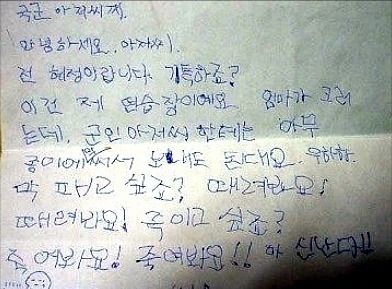 국군 아저씨께.
안녕하세요. 아저씨.
전 혜정이랍니다. 기특하죠?
이건 제 연습장이예요. 엄마가 그러
는데, 군인아저씨 한테는 아무
종이에 써서 보내도 된대요. 우하하.
막 패고 싶죠? 때려봐요!
때려봐요! 죽이고 싶죠?
죽여봐요! 죽여봐요!! 아 신난다!!